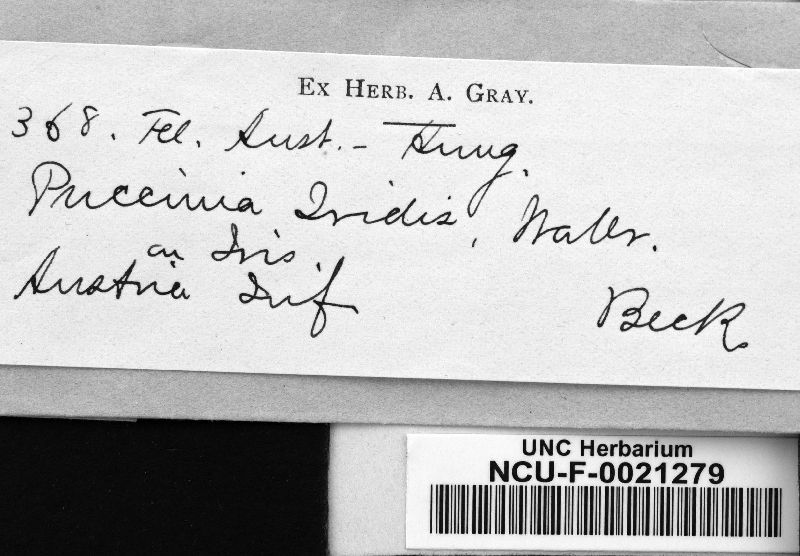 Ex Herb. A. Gray.
368. Fl. Aust. - Hung.
Puccinia Iridis, Wallr.
on Iris.
Austria Inf
Beck
UNC Herbarium
NCU-F-0021279